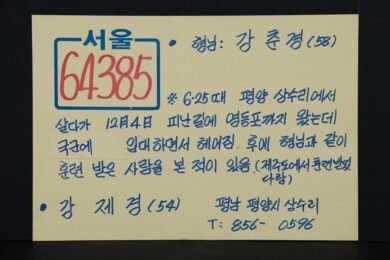 서울
64385
• 형님: 강춘경 (58)
※ 6·25때 평양 상수리에서
살다가 12月4日 피난길에 영등포까지 왔는데
국군에 입대하면서 헤어짐. 후에 형님과 같이
훈련 받은 사람을 본 적이 있음. (제주도에서 훈련받았
다함)
• 강제경 (54) 평남 평양시 상수리
T: 856- 0596